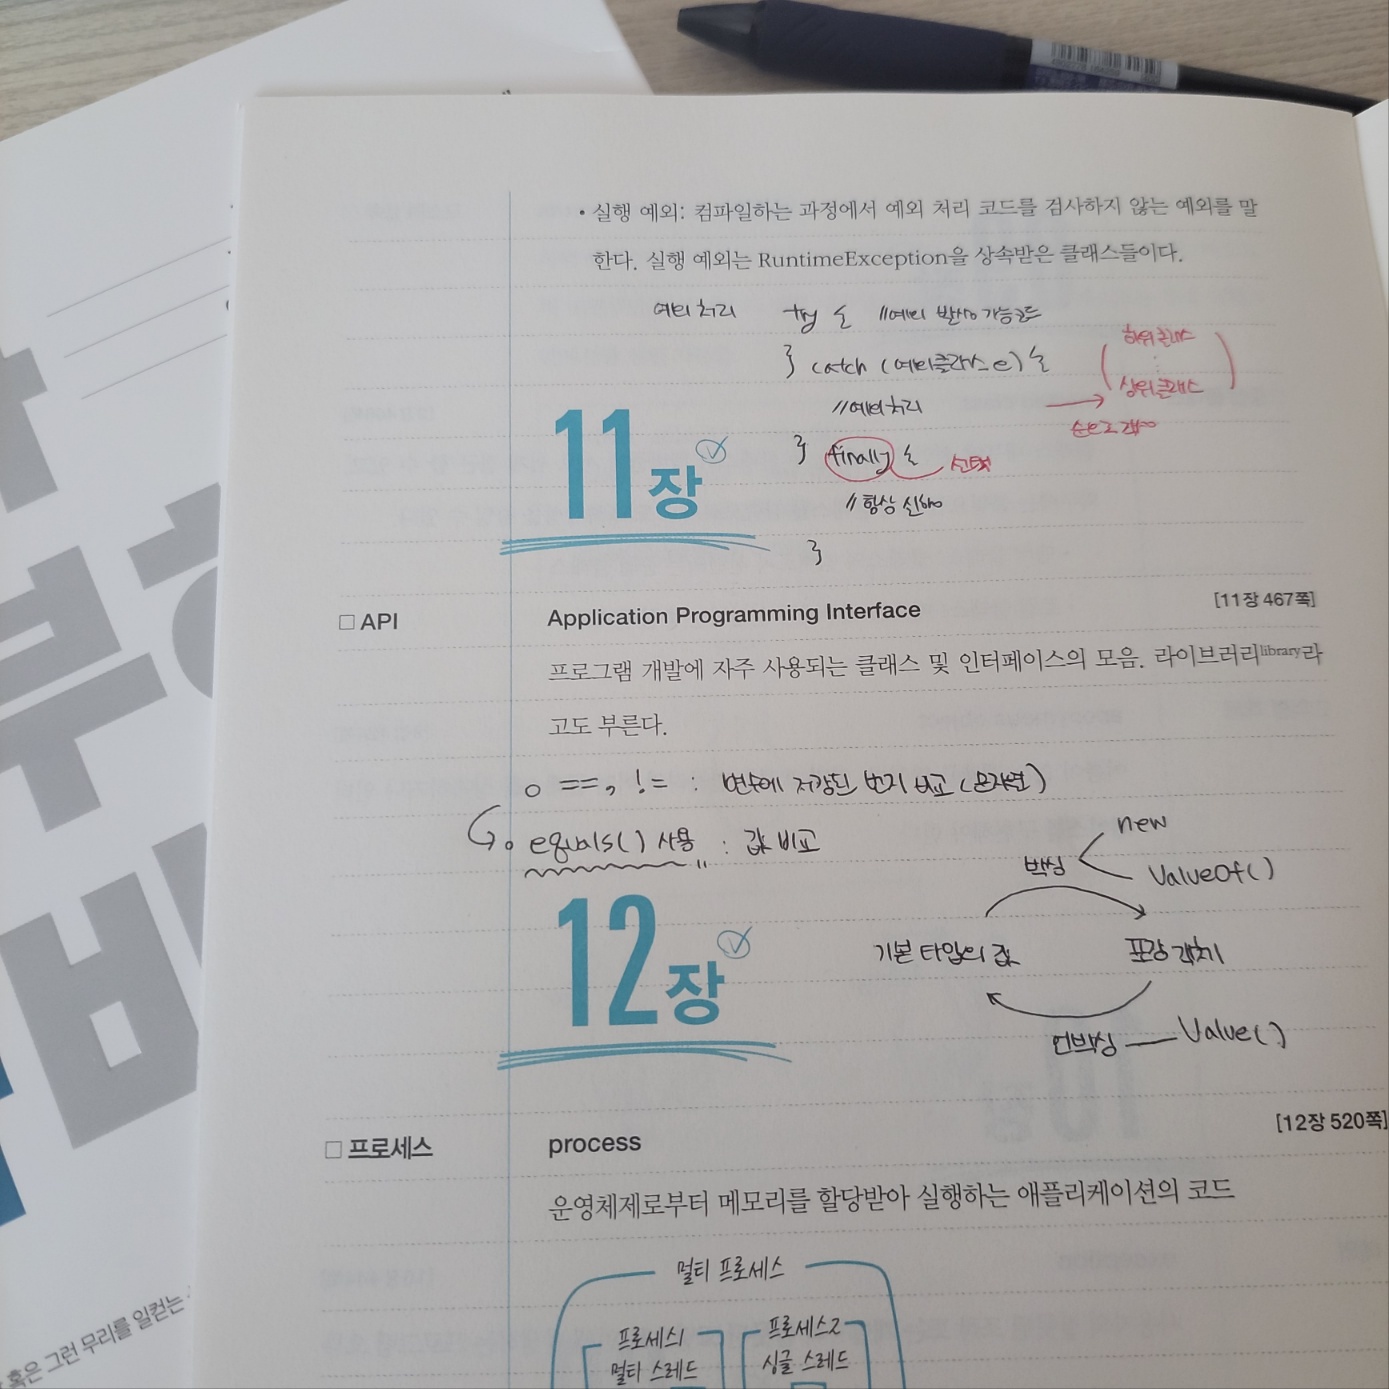 • 실행 예외: 컴파일하는 과정에서 예외 처리 코드를 검사하지 않는 예외를 말
한다. 실행 예외는 RuntimeException을 상속받은 클래스들이다.
예외 처리 try { //예외 발생 가능 코드
} catch (예외클래스 e) {
//예외 처리
} finally {
//항상 실행
}
하위클래스
상위클래스
순으로
선택
11장
□ API Application Programming Interface [11장 467쪽]
프로그램 개발에 자주 사용되는 클래스 및 인터페이스의 모음. 라이브러리library라
고도 부른다.
○ ==, != : 변수에 저장된 번지 비교 (문자열)
○ equals() 사용 : 값 비교
12장
new
박싱
ValueOf()
기본 타입의 값 포장 객체
언박싱 — Value()
□ 프로세스 process [12장 520쪽]
운영체제로부터 메모리를 할당받아 실행하는 애플리케이션의 코드
멀티 프로세스
프로세스1 프로세스2
멀티 스레드 싱글 스레드
혹은 그런 무리를 일컫는